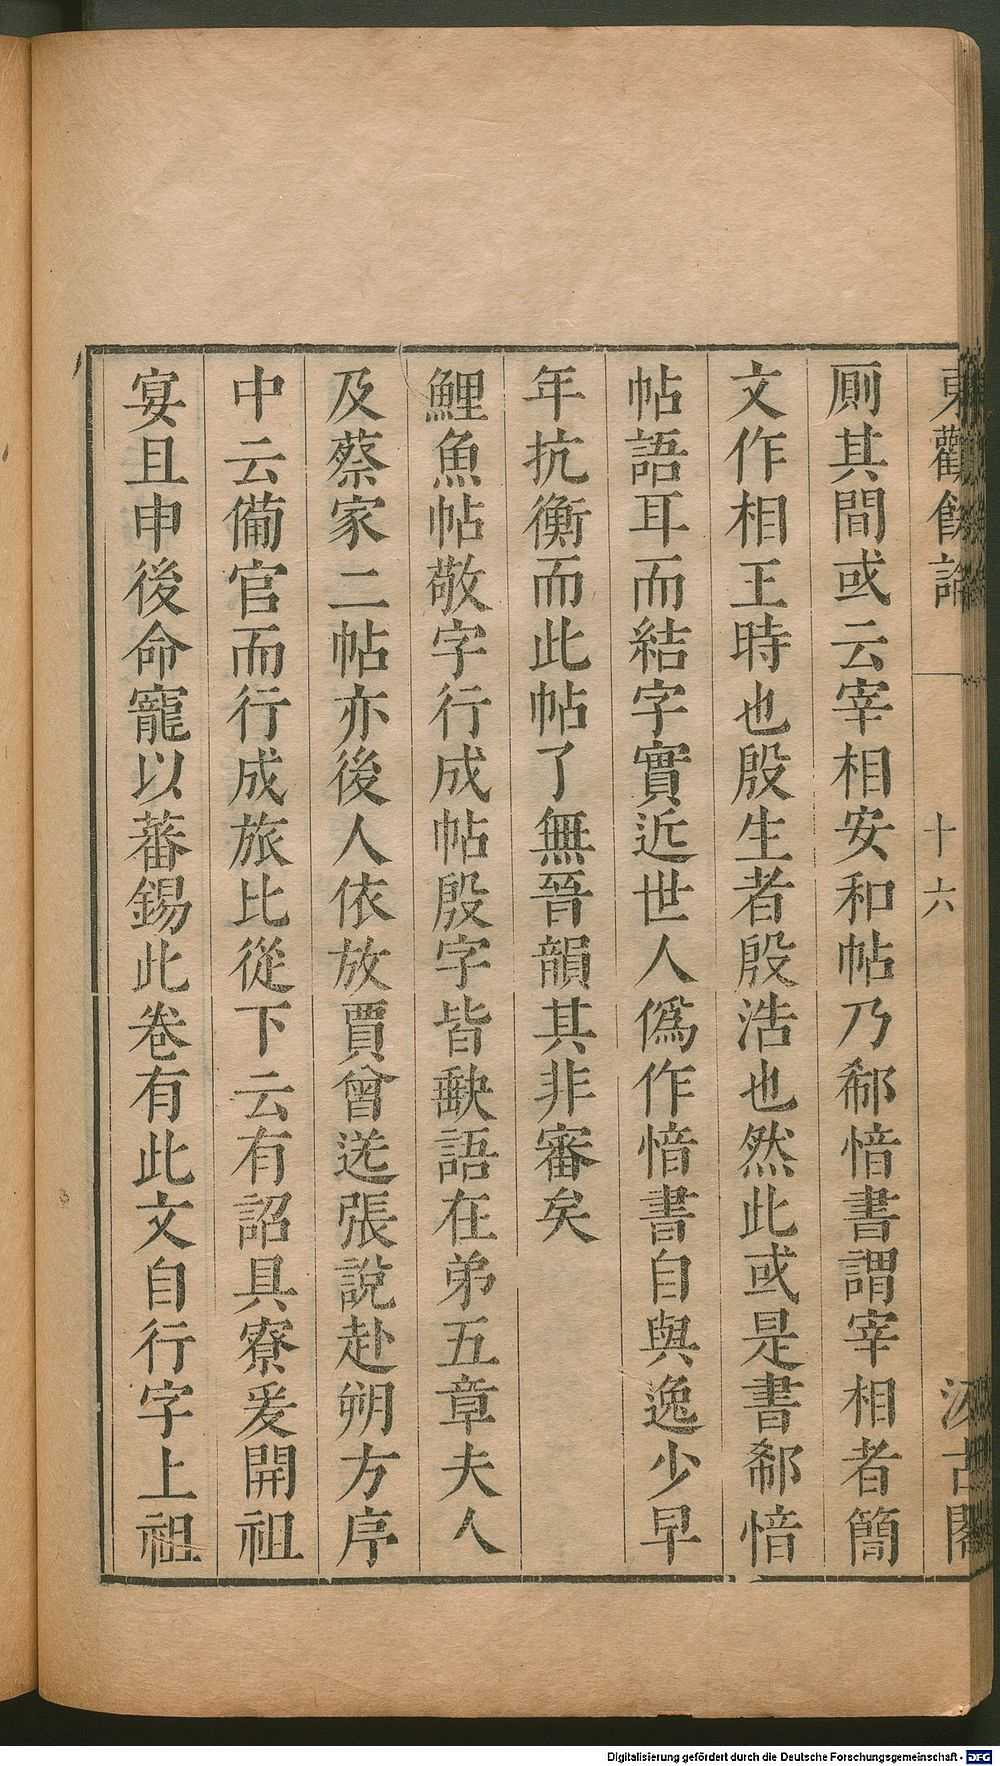 東觀餘論
十六
汲古閣
厠其間或云宰相安和帖乃郗愔書謂宰相者簡
文作相王時也殷生者殷浩也然此或是書郗愔
帖語耳而結字實近世人僞作愔書自與逸少早
年抗衡而此帖了無晉韻其非審矣
鯉魚帖敬字行成帖殷字皆缺語在弟五章夫人
及蔡家二帖亦後人依放賈曾送張說赴朔方序
中云備官而行成旅比從下云有詔具寮爰開祖
宴且申後命寵以蕃錫此卷有此文自行字上祖
Digitalisierung gefördert durch die Deutsche Forschungsgemeinschaft - DFG